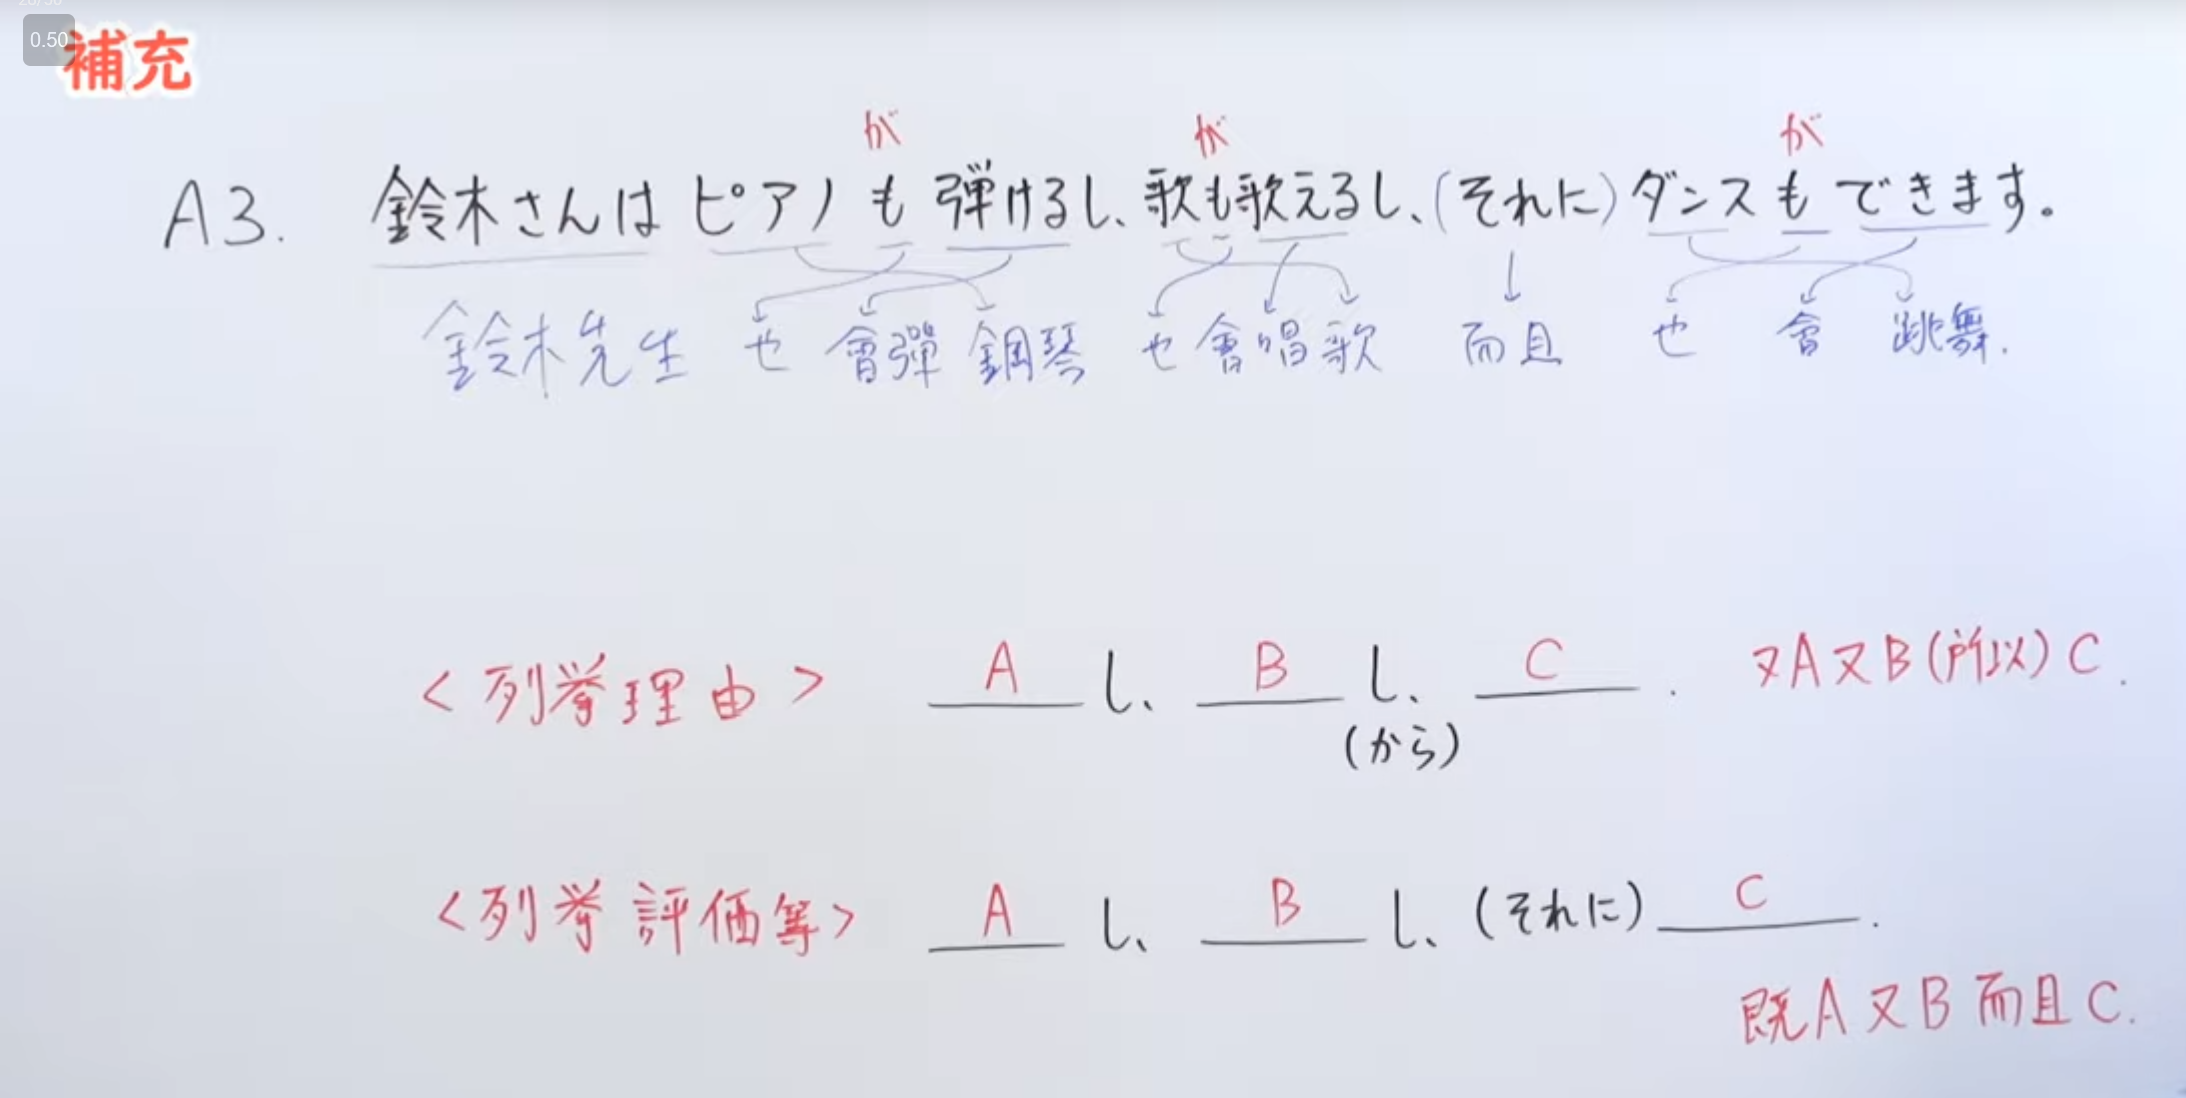 0.50
補充
が が が
A3. 鈴木さんは ピアノ も 弾けるし、歌も歌えるし、(それに)ダンス も できます。
鈴木先生 也 會彈 鋼琴 也 會唱 歌 而且 也 會 跳舞.
<列挙理由> A し、 B し、 C . 又A又B(所以)C.
(から)
<列挙評価等> A し、 B し、(それに) C .
既A又B而且C.